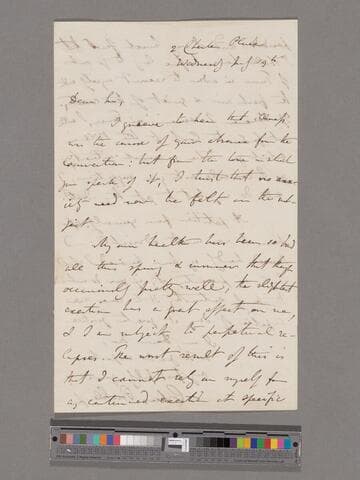 2 Chester Place
Wednesday July 19th
Dear Sir,
I grieve to hear that illness
was the cause of your absence from the
convocation; but from the tone in which
you speak of it, I trust that no anx-
iety need now be felt on the sub-
ject.
My own health has been so bad
all this spring & summer that though
occasionally pretty well, the slightest
exertion has a great effect on me,
& I am subject to perpetual re-
lapses. The worst result of this is
that I cannot rely on myself for
any continued exertion at specific